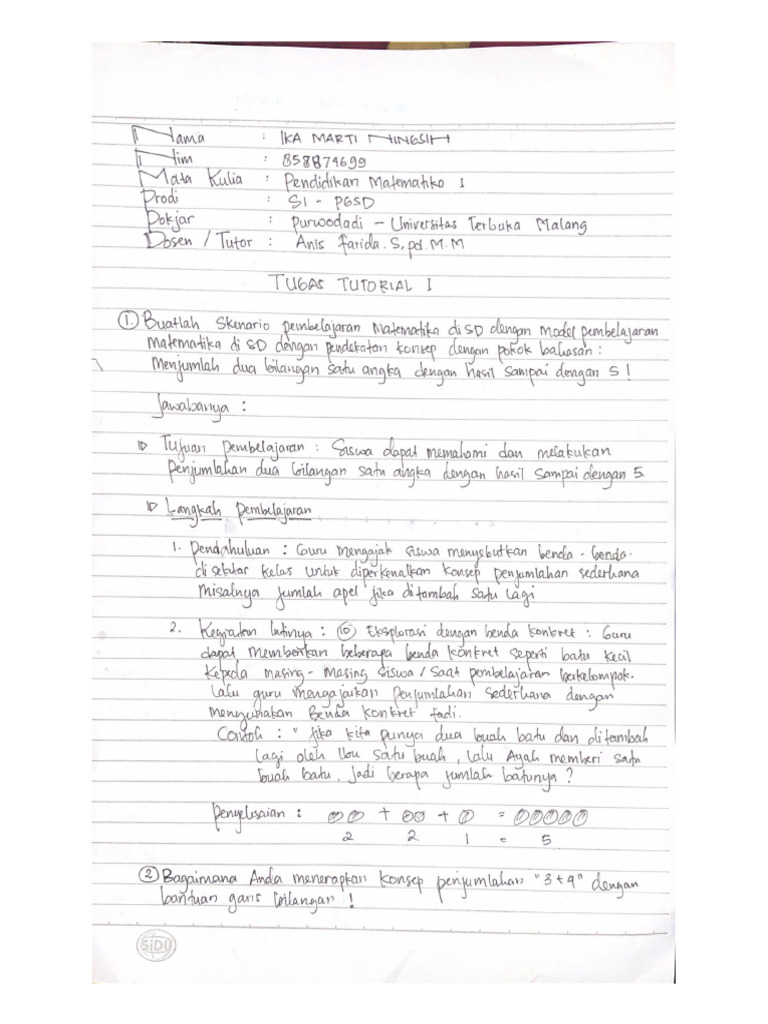 Nama : IKA MARTI NINGSIH
Nim : 858874699
Mata Kulia : Pendidikan Matematika 1
Prodi : S1 - PGSD
Pokjar : Purwodadi - Universitas Terbuka Malang
Dosen / Tutor : Anis Farida. S,pd. M.M
TUGAS TUTORIAL 1
1. Buatlah Skenario pembelajaran Matematika di SD dengan model pembelajaran
Matematika di SD dengan pendekatan konsep dengan pokok bahasan :
Menjumlah dua bilangan satu angka dengan hasil sampai dengan 5 !
Jawabanya :
Tujuan pembelajaran : Siswa dapat memahami dan melakukan
penjumlahan dua bilangan satu angka dengan hasil sampai dengan 5
Langkah pembelajaran
1. Pendahuluan : Guru mengajak siswa menyebutkan benda - benda
di sekitar kelas untuk diperkenalkan konsep penjumlahan sederhana
misalnya jumlah apel jika ditambah satu lagi
2. Kegiatan Intinya : Eksplorasi dengan benda konkret : Guru
dapat memberikan beberapa benda konkret seperti batu kecil
kepada masing - masing siswa / saat pembelajaran berkelompok.
Lalu guru mengajarkan penjumlahan sederhana dengan
menggunakan Benda konkret tadi.
Contoh : " Jika kita punya dua buah batu dan ditambah
lagi oleh Ibu satu buah, lalu Ayah memberi satu
buah batu, Jadi berapa jumlah batunya ?
Penyelisaian : + + =
2 2 1 = 5
2. Bagaimana Anda menerapkan konsep penjumlahan "3+4" dengan
bantuan garis bilangan !
SiDU